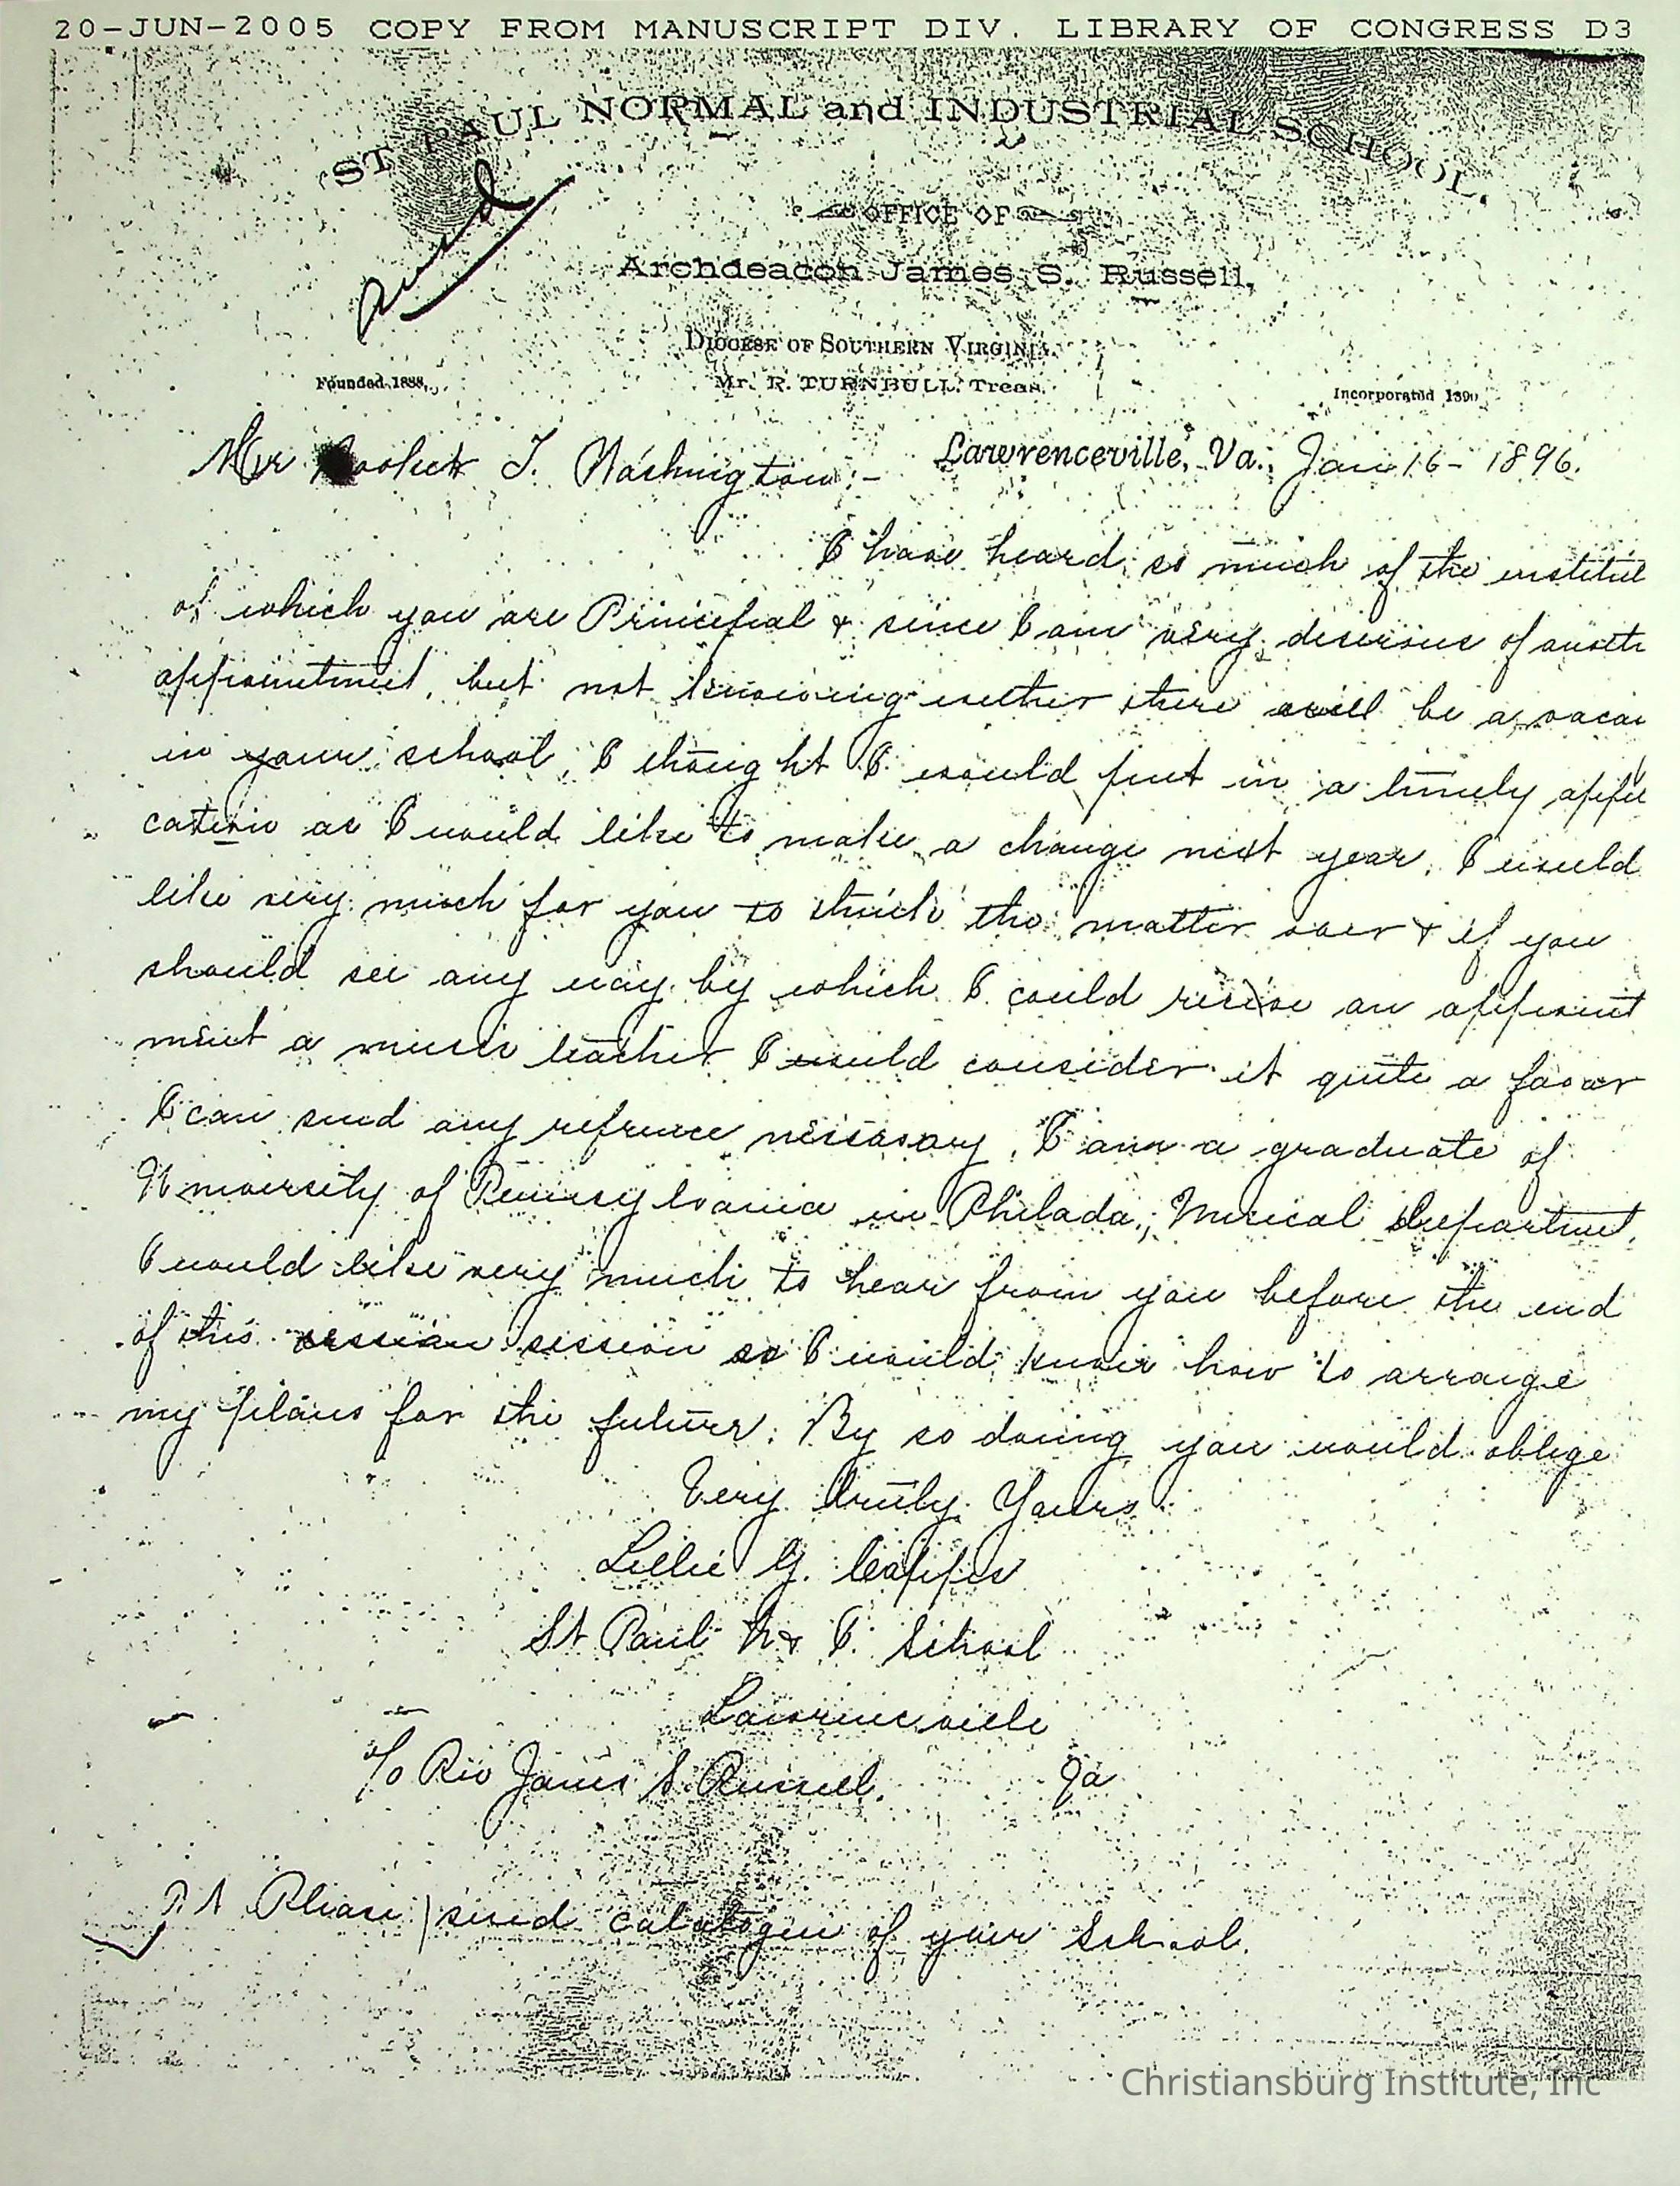 20-JUN-2005 COPY FROM MANUSCRIPT DIV. LIBRARY OF CONGRESS D3
ST PAUL NORMAL and INDUSTRIAL SCHOOL.
OFFICE OF
Archdeacon James S. Russell,
DIOCESE OF SOUTHERN VIRGINIA.
Founded 1888, Mr. R. TURNBULL Treas. Incorporated 1890
Mr Booker T. Washington:- Lawrenceville, Va., Jan 16- 1896.
I have heard so much of the institut
of which you are Principal & since I am very desirous of anoth
appointment, but not knowing wether there will be a vacan
in your school, I thought I would put in a timely appli
cation as I would like to make a change next year. I would
like very much for you to think the matter over & if you
should see any way by which I could recive an appoint
ment a music teacher I would consider it quite a favor
I can send any refrence nessasary. I am a graduate of
University of Pennsylvania in Philada, Musical Department.
I would like very much to hear from you before the end
of this session session so I would know how to arrange
my plans for the future. By so doing you would oblige
Very truly Yours
Lillie G.
St Paul N & I. School
Lawrenceville
c/o Rev James S. Russell. Va
P.S Please send catalogue of your School.
Christiansburg Institute, Inc